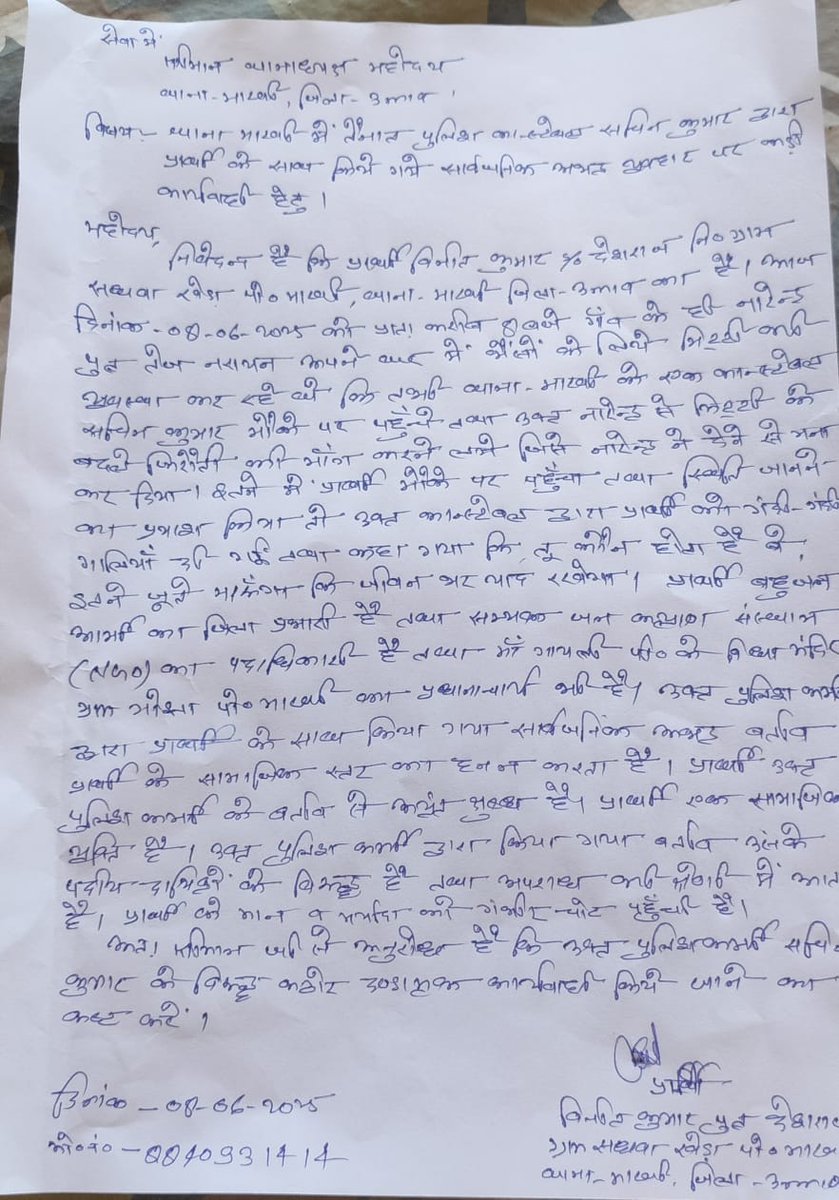 सेवा में
श्रीमान थानाध्यक्ष महोदय
थाना-माखी, जिला-उन्नाव।
विषय- थाना माखी में तैनात पुलिश कान्स्टेबल सचिन कुमार द्वारा
प्रार्थी के साथ किये गये सार्वजनिक अभद्र व्यवहार पर कड़ी
कार्यवाही हेतु।
महोदय,
निवेदन है कि प्रार्थी विनीत कुमार S/o देशराज नि० ग्राम
खेड़ा पो० माखी, थाना-माखी जिला-उन्नाव का है। आज
दिनांक-08-06-2025 को प्रातः करीब 8 बजे गाँव के ही नरेन्द्र
पुत्र तेज नरायन अपने घर में भैंसों के लिये मिट्टी की
व्यवस्था कर रहे थे कि तभी थाना-माखी के एक कान्स्टेबल
सचिन कुमार मौके पर पहुँचे तथा उक्त नरेन्द्र से मिट्टी के
बदले फिरौती की माँग करने लगे जिसे नरेन्द्र ने देने से मना
कर दिया। इतने में प्रार्थी मौके पर पहुँचा तथा स्थिति जानने
का प्रयाश किया तो उक्त कान्स्टेबल द्वारा प्रार्थी को गंदी-गंदी
गालियाँ दी गईं तथा कहा गया कि, तू कौन होता है बे,
इतने जूते मारूँगा कि जीवन भर याद रखेगा। प्रार्थी बहुजन
आर्मी का जिला प्रभारी है तथा सम्यक जन कल्याण संस्थान
(NGO) का पदाधिकारी है तथा माँ गायत्री पी० के० विद्या मंदिर
ग्राम पो० माखी का प्रधानाचार्य भी है। उक्त पुलिश कर्मी
द्वारा प्रार्थी के साथ किया गया सार्वजनिक अभद्र बर्ताव
प्रार्थी के सामाजिक स्तर का हनन करता है। प्रार्थी उक्त
पुलिश कर्मी के बर्ताव से क्षुब्ध है। प्रार्थी एक सामाजिक
व्यक्ति है। उक्त पुलिश कर्मी द्वारा किया गया बर्ताव उसके
पदीय दायित्वों के विरूद्ध है तथा अपराध की श्रेणी में आता
है। प्रार्थी के मान व मर्यादा को गंभीर चोट पहुँची है।
अतः श्रीमान जी से अनुरोध है कि उक्त पुलिश कर्मी सचिन
कुमार के विरूद्ध कठोर दण्डात्मक कार्यवाही किये जाने का
कष्ट करें।
प्रार्थी
दिनांक-08-06-2025
विनीत कुमार पुत्र देशराज
मो०नं०-8840931414
ग्राम खेड़ा पो० माखी
थाना-माखी, जिला-उन्नाव